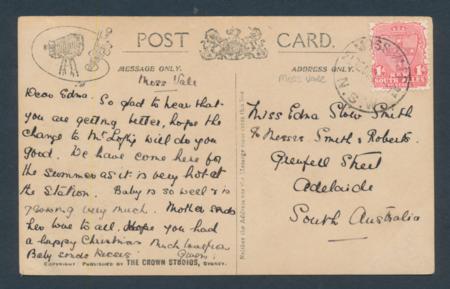 POST CARD.
MESSAGE ONLY.
ADDRESS ONLY.
Moss Vale
Dear Edna. So glad to hear that
you are getting better, hope the
change to Mt Lofty will do you
good. We have come here for
the Summer as it is very hot at
the Station. Baby is so well & is
growing very much. Mother sends
her love to all. Hope you had
a happy Christmas Much love from
Baby sends kisses Gwen.
COPYRIGHT: PUBLISHED BY THE CROWN STUDIOS, SYDNEY.
Moss Vale
MOSS
N.S.W
1d 1d
Miss Edna Stow Smith
Messrs. Smith & Roberts.
Grenfell Street
Adelaide
South Australia